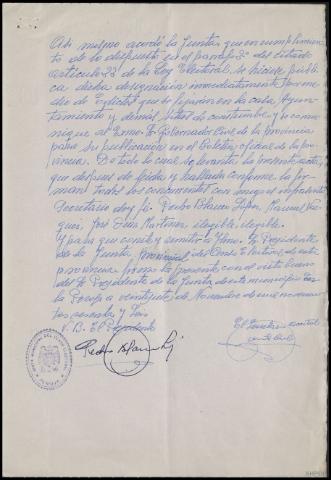 Asi mismo acordó la Junta, que en cumplimiento
de lo dispuesto en el parrafo 2º del citado
articulo 23 de la Ley Electoral, se hiciese públi-
ca dicha designación inmediatamente por me-
dio de Edictos que se fijaran en la casa Ayun-
tamiento y demas sitios de costumbre, y se comu-
nique al Exmo Sr Gobernador Civil de la provincia
para su publicación en el Boletin oficial de la pro-
vincia. De todo lo cual se levanta la presente acta,
que despues de leida y hallada conforme la fir-
man todos los concurrentes con migo el infrascrito
Secretario doy fe. Pedro Blanco
José Luis Martinez, ilegible, ilegible.
Y para que conste y remitir a Ilmo. Sr Presidente
de la Junta Provincial del Censo Electoral de esta
provincia firmo la presente con el visto bueno
del Sr Presidente de la Junta de este municipio
a veintisiete de
tos sesenta y seis
V. B. El Presidente
El Secretario
Pedro Blanco
AHPGU